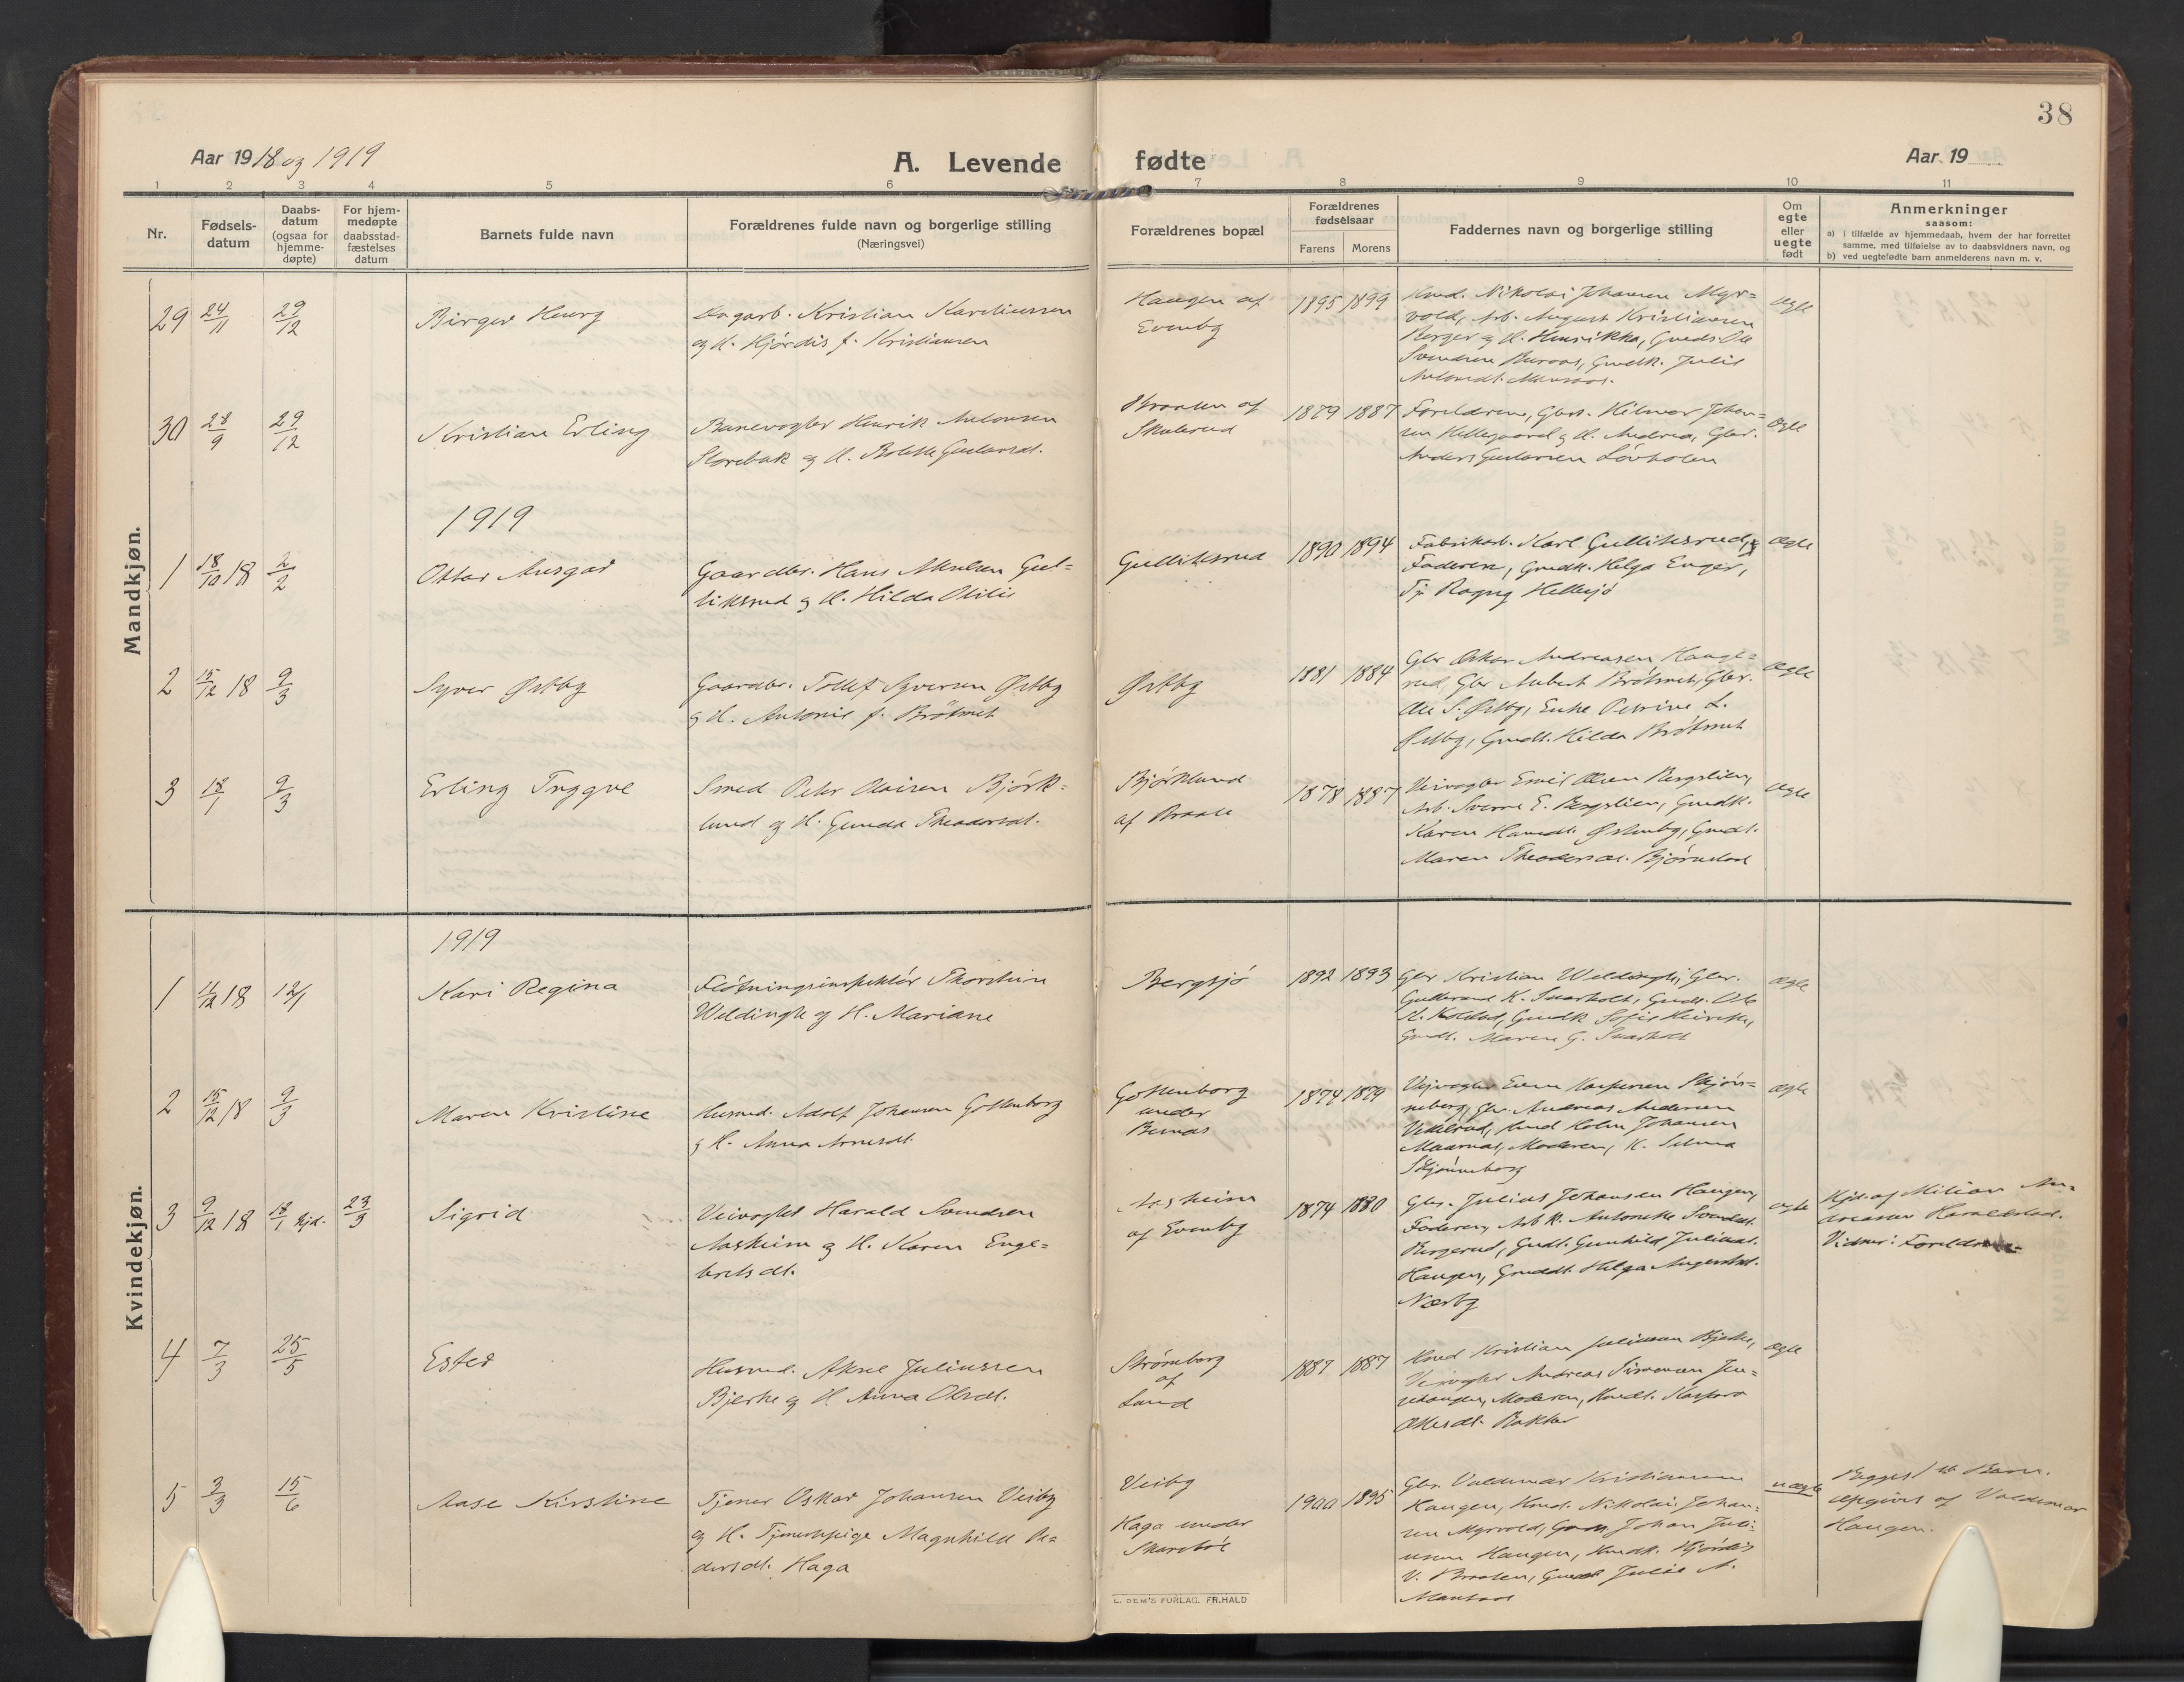 38
Aar 1918 og 1919
A. Levende fødte
Aar 19
1 2 3 4 5 6 7 8 9 10 11
Nr.
Fødsels-
datum
Daabs-
datum
(ogsaa for
hjemme-
døpte)
For hjem-
medøpte
daabsstad-
fæstelses
datum
Barnets fulde navn
Forældrenes fulde navn og borgerlige stilling
(Næringsvei)
Forældrenes bopæl
Forældrenes
fødselsaar
Farens Morens
Faddernes navn og borgerlige stilling
Om
egte
eller
uegte
født
Anmerkninger
saasom:
a) i tilfælde av hjemmedaab, hvem der har forrettet
samme, med tilføielse av to daabsvidners navn, og
b) ved uegtefødte barn anmelderens navn m. v.
Mandkjøn.
29 24/11 29/12 Birger
Kristian
og H. Hjørdis f. Kristiansen
Haugen af
Evenby
1895 1899
Nikolai Johansen Myr=
vold, Arb. August Kristiansen
og H. Henrikka,
Julie
egte
30 28/9 29/12 Kristian Erling
Banevogter Henrik Antonsen
og H. Gudarsdt.
Braaten af
Skulerud
1879 1887
Foreldrene, Gbr. Hilmar Johan=
sen og H. Andrea, Gbr.
Anders Løvholen
egte
1919
1 18/10 18 2/2 Ottar Ansgar
Gaardbr. Hans Gul=
liksrud og H. Hilda Otilie
Gulliksrud
1890 1894
Fabrikarb. Karl Gulliksrud, og
Faderen, Gmdk. Helga Enger,
Tj. Ragng Hellesjø
egte
2 15/12 18 9/3 Syver Østby
Gaardbr. Tollef Syversen Østby
og H. Antonie f. Brøtmet
Østby
1881 1884
Gbr Oskar Andreasen Hauge=
rud, Gbr Brøtmet, Gbr.
Ole S. Østby, Enke Petrine L.
Østby, Gmdt. Hilda Brøtmet
egte
3 18/1 9/3 Erling Tryggve
Smed Peter Olaisen Bjørk=
lund og H. Gunda Theodorsdt.
Bjørklund
af Braate
1878 1887
Veivogter Emil Olsen Bergslien,
Arb. Sverre E. Bergslien, Gmdk.
Karen Hansdt. Østenby, Gmdt.
Maren Theodorsdt. Bjørnstad
egte
Kvindekjøn.
1919
1 11/12 18 12/1 Kari Regina
Fløtningsinspektør Thorstein
Weldingh og H. Mariane
Bergsjø
1892 1893
Gbr Kristian Weldingh, Gbr.
K.
Gmdk Sofie
Gmdt. Maren G.
egte
2 15/12 18 9/3 Maren Kristine
Husmd. Adolf Johansen Gottenborg
og H. Anna Arnesdt.
Gottenborg
under
1874 1879
Veivogter Even Kaspersen Skjøn=
neberg, Gbr. Andreas Andersen
Johansen
Moderen, H. Selma
Skjønneberg
egte
3 9/12 18 18/1 hjd. 23/3 Sigrid
Veivogter Harald Svendsen
Aasheim og H. Karen Enge=
bretsdt.
Aasheim
af Evenby
1874 1880
Gbr. Julius Johansen Haugen,
Faderen, Arb k. Antonette Svendsdt.
Bergerud, Gmdt. Gunhild Juliusdt.
Haugen, Gmddt. Helga Augustsdt.
Nærby
egte
Hjd. af Milian An=
dreassen Haraldstad.
Vidner: Foreldrene
4 7/3 25/5 Ester
Husmd. Aksel Juliussen
Bjerke og H Anna Olsdt.
Strømberg
af
Lund
1887 1887
Hmd Kristian Juliussen Bjerke,
Veivogter Andreas Simensen
Moderen, Hmdt. Kaspara
Bakker
egte
5 3/3 15/6 Aase Kirstine
Tjener Oskar Johansen Veiby
og H. Tjenestepige Magnhild Pe=
dersdt. Haga
Veiby
Haga under
Skarsbøl
1900 1895
Gbr. Valdemar Kristiansen
Haugen, Hmd. Nikolai Johan=
sen Myrvold, Johan Juli=
ussen Haugen, Hmdk. Hjørdis
V. Braaten, Julie A.
uegte
Begges 1ste Barn.
Opgivet af Valdemar
Haugen.
L. DEM'S FORLAG. FR.HALD